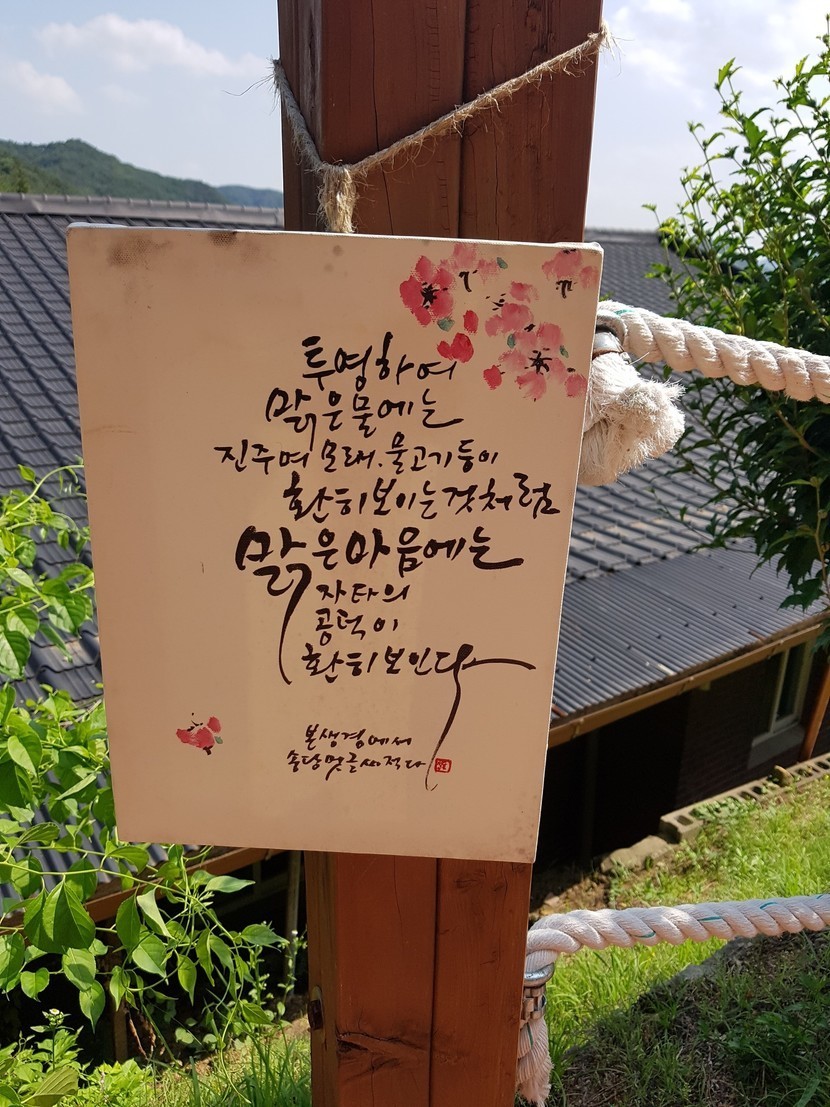 투영하여
맑은물에는
진주며 모래.물고기등이
환히보이는것처럼
맑은마음에는
자타의
공덕이
환히보인다
본생경에서
송당멋글씨적다